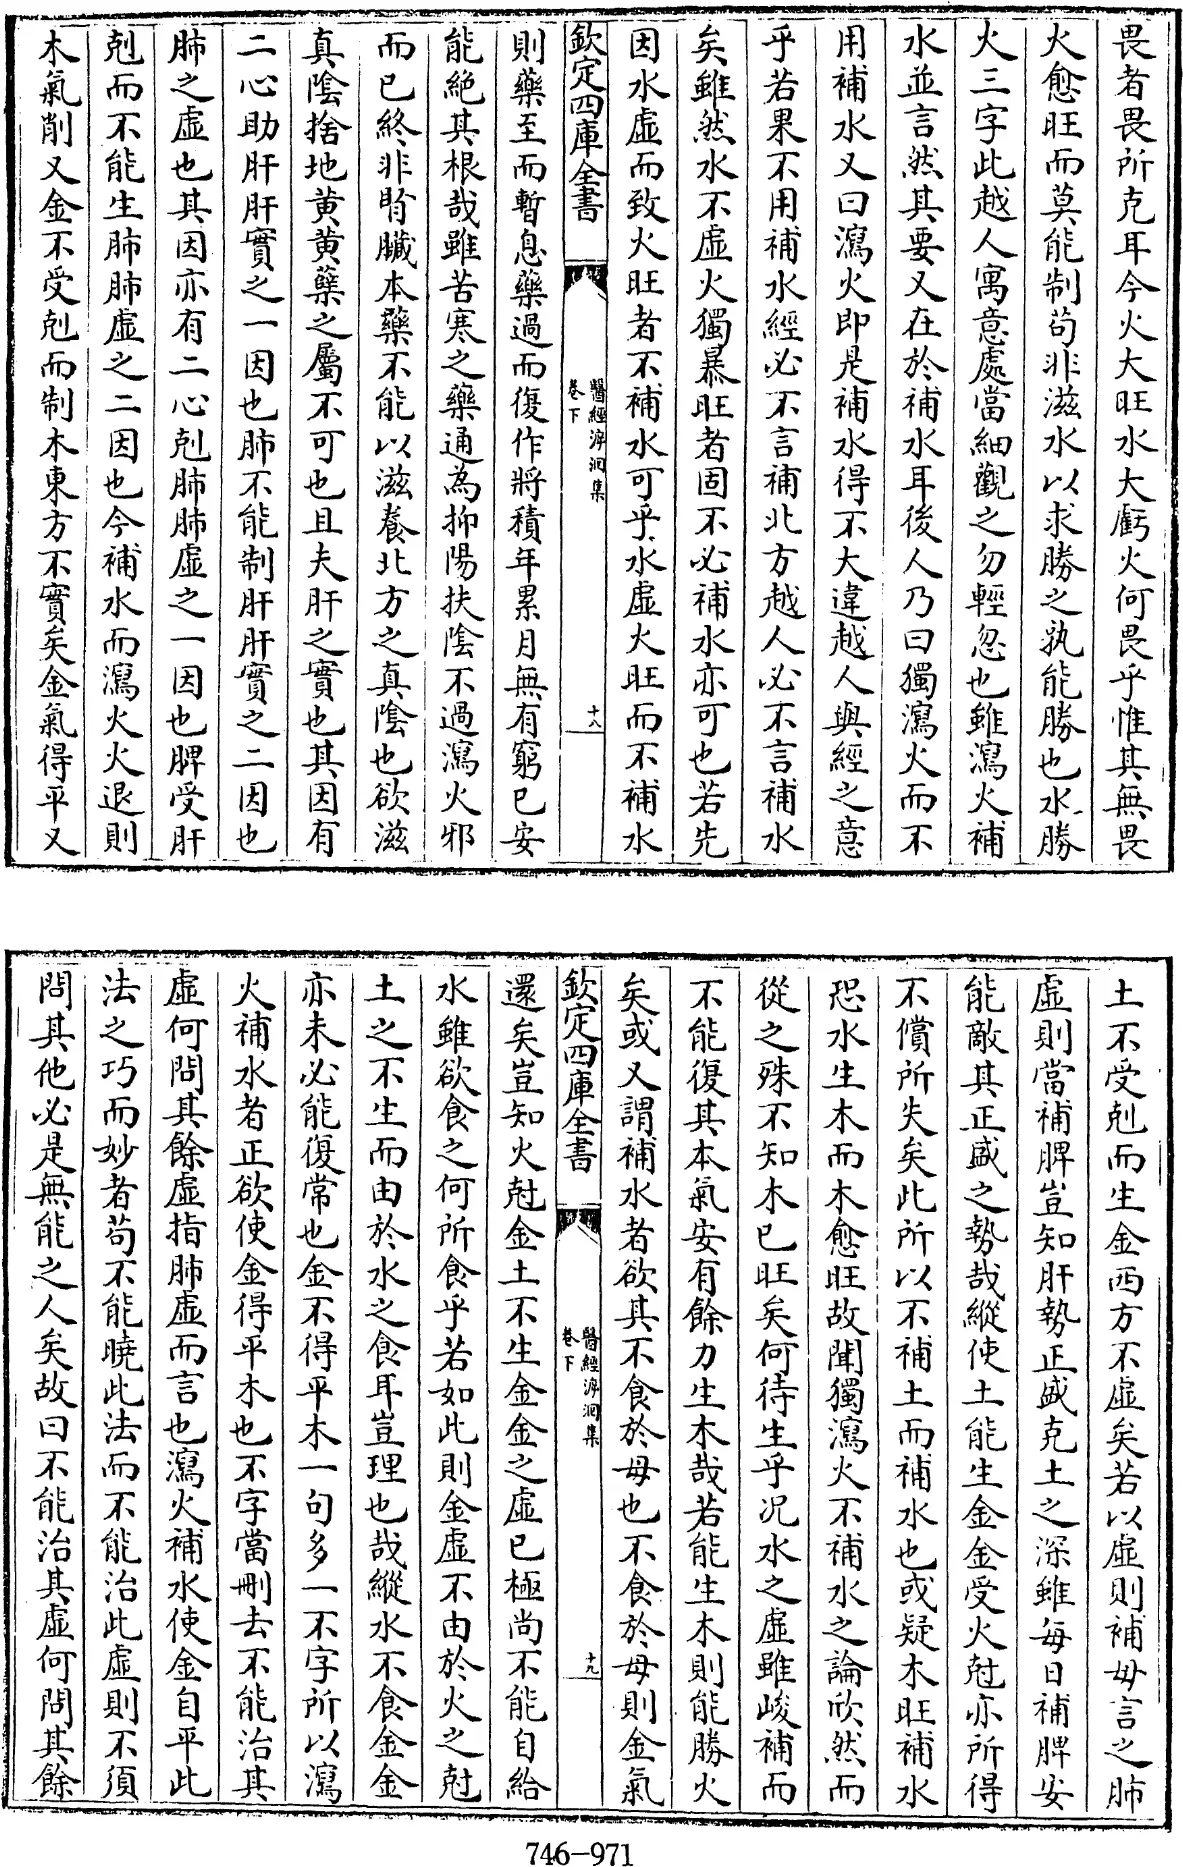 畏者畏所克耳今火大旺水大虧火何畏乎惟其無畏
火愈旺而莫能制苟非滋水以求勝之孰能勝也水勝
火三字此越人寓意處當細觀之勿輕忽也雖瀉火補
水並言然其要又在於補水耳後人乃曰獨瀉火而不
用補水又曰瀉火即是補水得不大違越人與經之意
乎若果不用補水經必不言補北方越人必不言補水
矣雖然水不虛火獨暴旺者固不必補水亦可也若先
因水虛而致火旺者不補水可乎水虛火旺而不補水
欽定四庫全書
醫經溯洄集
卷下
十八
則藥至而暫息藥過而復作將積年累月無有窮已安
能絶其根哉雖苦寒之藥通為抑陽扶陰不過瀉火邪
而已終非腎臟本藥不能以滋養北方之真陰也欲滋
真陰捨地黄黄蘗之屬不可也且夫肝之實也其因有
二心助肝肝實之一因也肺不能制肝肝實之二因也
肺之虛也其因亦有二心剋肺肺虛之一因也脾受肝
剋而不能生肺肺虛之二因也今補水而瀉火火退則
木氣削又金不受剋而制木東方不實矣金氣得平又
土不受剋而生金西方不虛矣若以虛則補母言之肺
虛則當補脾豈知肝勢正盛克土之深雖每日補脾安
能敵其正盛之勢哉縱使土能生金金受火尅亦所得
不償所失矣此所以不補土而補水也或疑木旺補水
恐水生木而木愈旺故聞獨瀉火不補水之論欣然而
從之殊不知木已旺矣何待生乎况水之虛雖峻補而
不能復其本氣安有餘力生木哉若能生木則能勝火
矣或又謂補水者欲其不食於母也不食於母則金氣
欽定四庫全書
醫經溯洄集
卷下
十九
還矣豈知火尅金土不生金金之虛已極尚不能自給
水雖欲食之何所食乎若如此則金虛不由於火之尅
土之不生而由於水之食耳豈理也哉縱水不食金金
亦未必能復常也金不得平木一句多一不字所以瀉
火補水者正欲使金得平木也不字當刪去不能治其
虛何問其餘虛指肺虛而言也瀉火補水使金自平此
法之巧而妙者苟不能曉此法而不能治此虛則不須
問其他必是無能之人矣故曰不能治其虛何問其餘
746-971